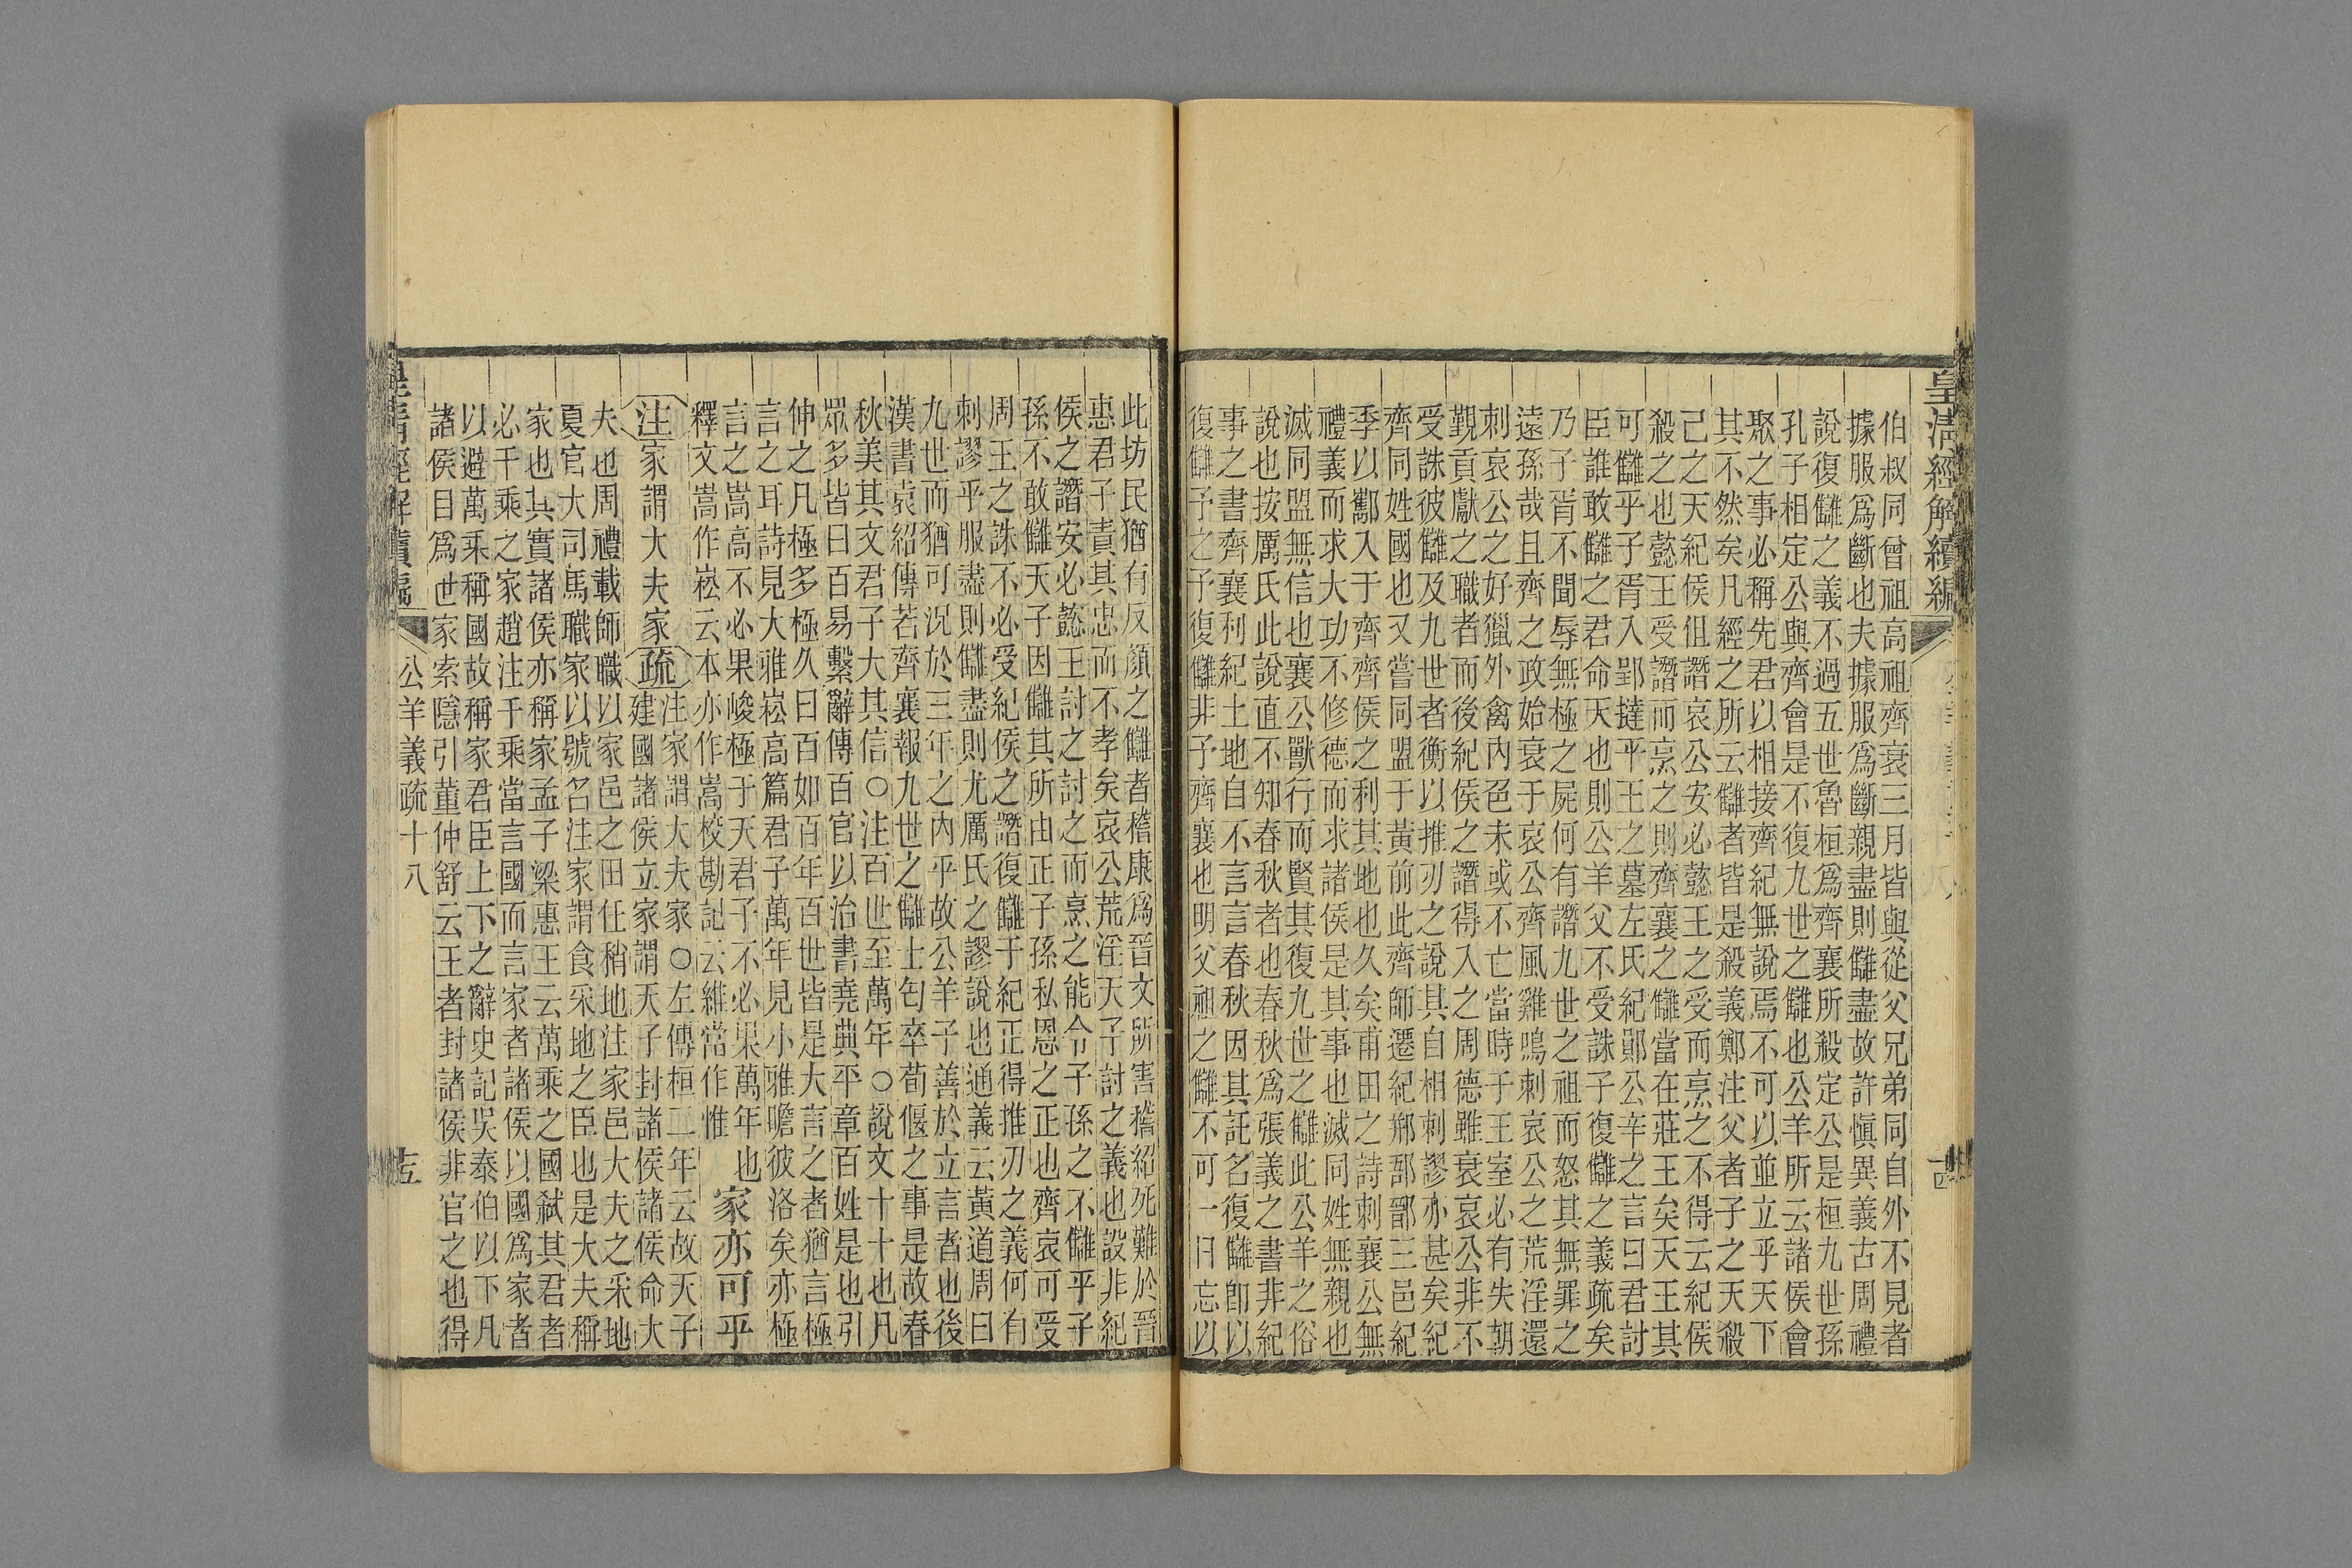 皇清經解續編
伯叔同曾祖高祖齊衰三月皆與從父兄弟同自外不見者
據服爲斷也夫據服爲斷親盡則讎盡故許愼異義古周禮
說復讎之義不過五世魯桓爲齊襄所殺定公是桓九世孫
孔子相定公與齊會是不復九世之讎也公羊所云諸侯會
聚之事必稱先君以相接齊紀無說焉不可以並立乎天下
其不然矣凡經之所云讎者皆是殺義鄭注父者子之天殺
己之天紀侯但譖哀公安必懿王之受而烹之不得云紀侯
殺之也懿王受譖而烹之則齊襄之讎當在莊王矣天王其
可讎乎子胥入郢撻平王之墓左氏紀鄖公辛之言曰君討
臣誰敢讎之君命天也則公羊父不受誅子復讎之義疏矣
乃子胥不聞辱無極之屍何有譖九世之祖而怒其無罪之
遠孫哉且齊之政始衰于哀公齊風雞鳴刺哀公之荒淫還
刺哀公之好獵外禽內色未或不亡當時于王室必有失朝
覲貢獻之職者而後紀侯之譖得入之周德雖衰哀公非不
受誅彼讎及九世者衡以推刃之說其自相刺謬亦甚矣紀
齊同姓國也又嘗同盟于黃前此齊師遷紀郱鄑郚三邑紀
季以酅入于齊齊侯之利其地也久矣甫田之詩刺襄公無
禮義而求大功不修德而求諸侯是其事也滅同姓無親也
滅同盟無信也襄公獸行而賢其復九世之讎此公羊之俗
說也按厲氏此說直不知春秋者也春秋爲張義之書非紀
事之書齊襄利紀土地自不言言春秋因其託名復讎卽以
復讎予之予復讎非予齊襄也明父祖之讎不可一日忘以
此坊民猶有反顏之讎者嵇康爲晉文所害嵇紹死難於晉
惠君子責其忠而不孝矣哀公荒淫天子討之義也設非紀
侯之譖安必懿王討之討之而烹之能令子孫之不讎乎子
孫不敢讎天子因讎其所由正子孫私恩之正也齊哀可受
周王之誅不必受紀侯之譖復讎于紀正得推刃之義何有
刺謬乎服盡則讎盡則尤厲氏之謬說也通義云黃道周曰
九世而猶可況於三年之內乎故公羊子善於立言者也後
漢書袁紹傳若齊襄報九世之讎士匄卒荀偃之事是故春
秋美其文君子大其信○注百世至萬年○說文十十也凡
眾多皆曰百易繫辭傳百官以治書堯典平章百姓是也引
伸之凡極多極久曰百如百年百世皆是大言之者猶言極
言之耳詩見大雅崧高篇君子萬年見小雅瞻彼洛矣亦極
言之嵩高不必果峻極于天君子不必果萬年也
釋文嵩作崧云本亦作嵩校勘記云維當作惟
家亦可乎
注家謂大夫家疏注家謂大夫家○左傳桓二年云故天子
建國諸侯立家謂天子封諸侯諸侯命大
夫也周禮載師職以家邑之田任稍地注家邑大夫之采地
夏官大司馬職家以號名注家謂食采地之臣也是大夫稱
家也其實諸侯亦稱家孟子梁惠王云萬乘之國弒其君者
必千乘之家趙注千乘當言國而言家者諸侯以國爲家者
以避萬乘稱國故稱家君臣上下之辭史記吳泰伯以下凡
諸侯目爲世家索隱引董仲舒云王者封諸侯非官之也得
公羊義疏十八